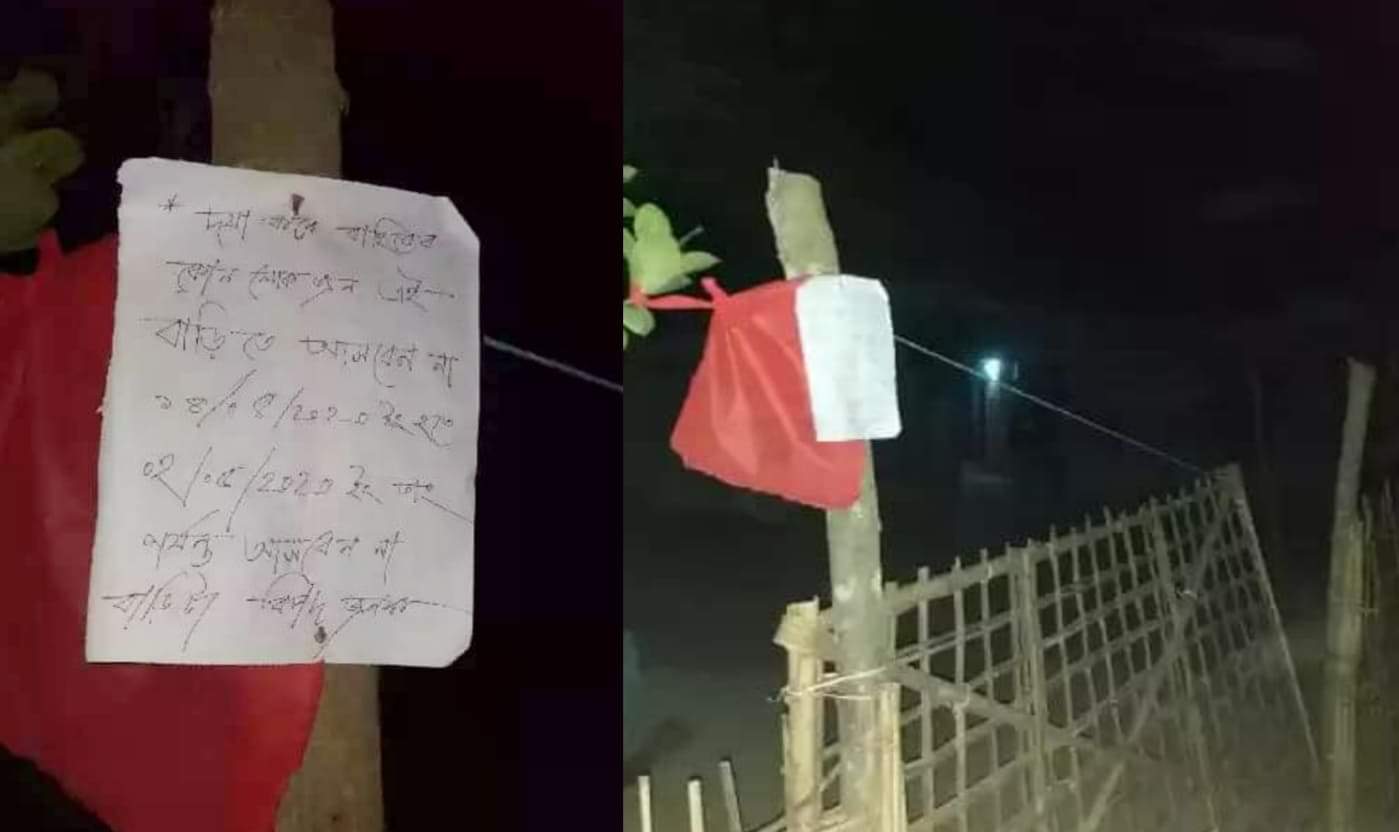 * দয়া করে বাহিরের
কোন লোক জন এই
বাড়িতে আসবেন না
১৪/০৪/২০২০ ইং হতে
০২/০৫/২০২০ ইং তাং
পর্যন্ত আসবেন না
বাড়িটা বিপদ জনক